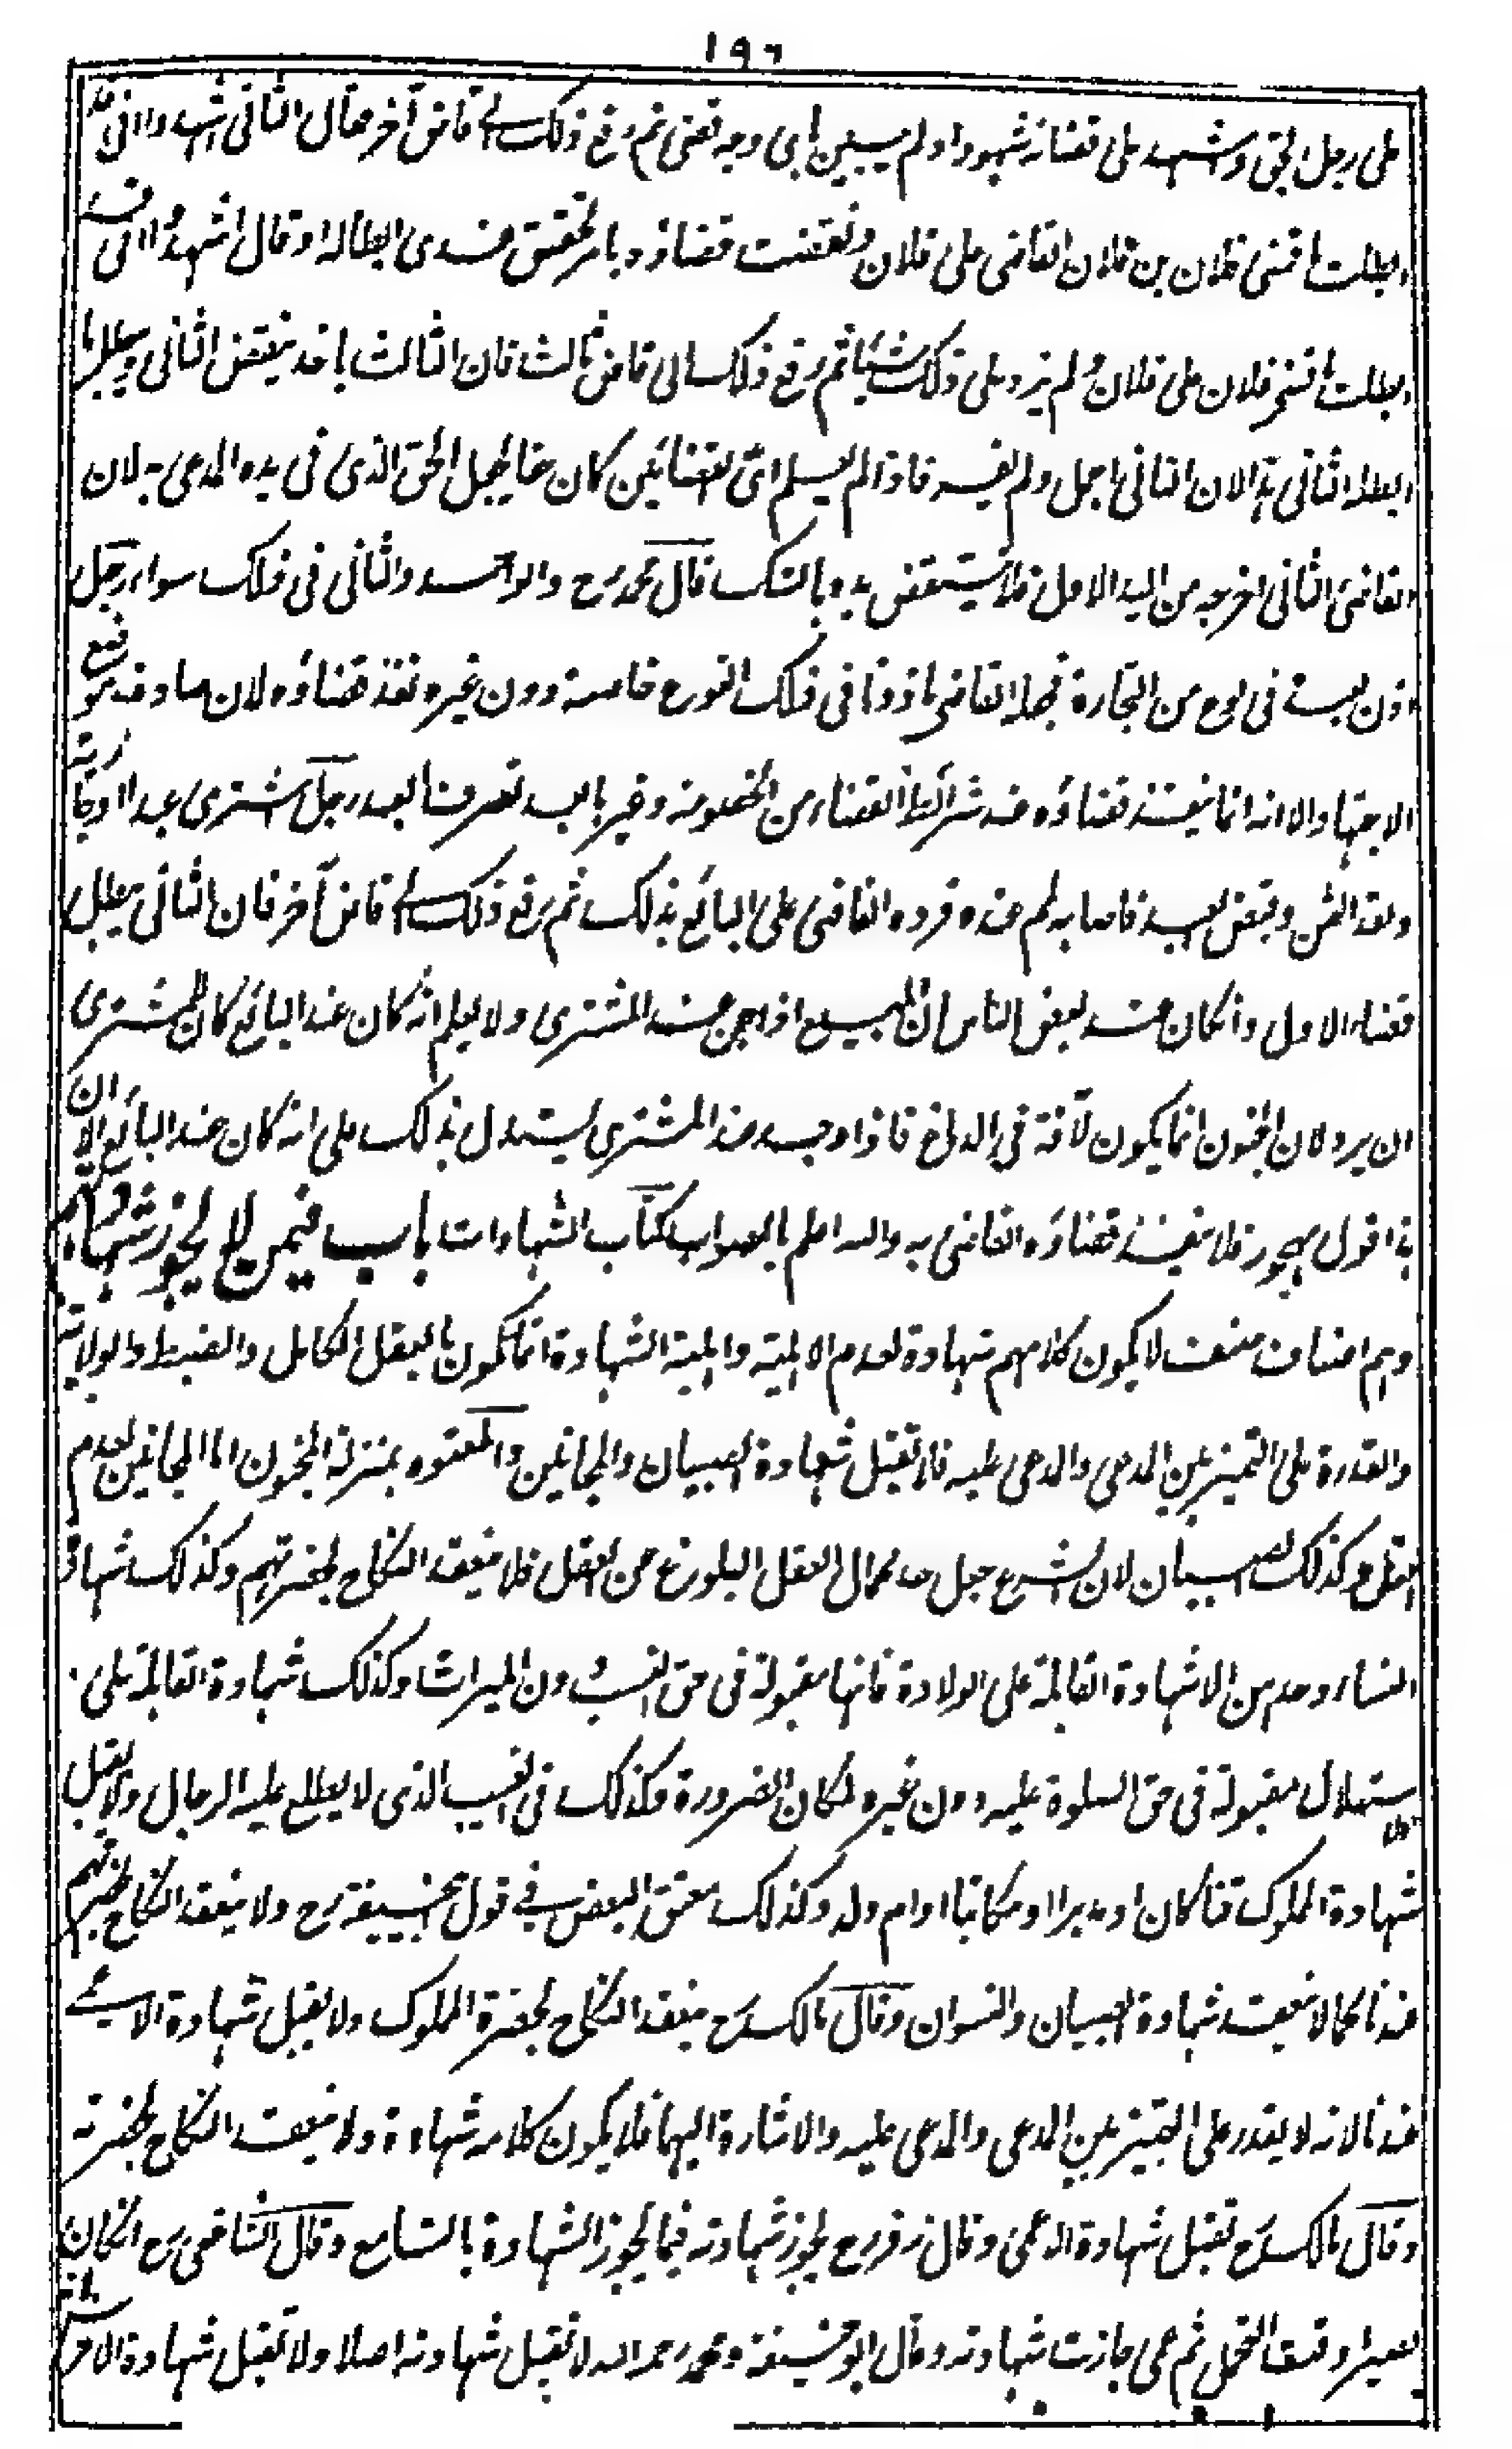 ١٩٦
على رجل بحق واشهد على قضائه شهودا ولم يبين باى وجه قضى ثم رفع ذلك الى قاض آخر فقال الثانى اشهدوا انى قد
ابطلت ما قضى فلان بن فلان القاضى على فلان ونقضت قضاؤه بامر تحقق عندى ابطاله او قال اشهدوا انى قد
ابطلت ما قضى فلان على فلان ولم يزد على ذلك شيئا ثم رفع ذلك الى قاض ثالث فان الثالث ياخذ بنقض الثانى ويبطل ما
ابطله الثانى هذا لان الثانى اجمل ولم يفسر فاذا لم يعلم اى القضائين كان خطأ يجعل الحق الذى فى يده المدعى به لان
القاضى الثانى اخرجه من اليد الاول فلا ينتقض يده بالشك قال محمد رح والواحد والثانى فى ذلك سواء رجل
اذن لعبده فى نوع من التجارة فجعله القاضى ماذونا فى ذلك النوع خاصة دون غيره نفذ قضاؤه لان صادف موضع
الاجتهاد الا انه انما ينفذ قضاؤه عند شرائط القضاء من الخصومة وغيرها بعد تصرف العبد رجل اشترى عبدا او جارية
ونقد الثمن وقبض العبد فاصابه لمم عنده فرده القاضى على البائع بذلك ثم رفع ذلك الى قاض آخر فان الثانى يبطل
قضاء الاول وانكان عند بعض الناس ان المبيع اذا جن عند المشترى ولا يعلم انه كان عند البائع كان للمشترى
ان يرد لان الجنون انما يكون لآفة فى الدماغ فاذا وجد عند المشترى يستدل بذلك على انه كان عند البائع الا ان
هذا قول مهجور فلا ينفذ قضاؤه القاضى به والله اعلم بالصواب كتاب الشهادات باب فيمن لا يجوز شهادتهم
وهم اصناف صنف لا يكون كلامهم شهادة لعدم الاهلية واهلية الشهادة انما تكون بالعقل الكامل والضبط والولاية
والقدرة على التميز بين المدعى والمدعى عليه فلا تقبل شهادة الصبيان والمجانين والمعتوه بمنزلة المجنون اما المجانين لعدم
العقل وكذلك الصبيان لان الشرع جعل حد كمال العقل البلوغ عن العقل فلا ينعقد النكاح بحضرتهم وكذلك شهادة
النساء وحدهن الا شهادة القابلة على الولادة فانها مقبولة فى حق النسب دون الميراث وكذلك شهادة القابلة على
الاستهلال مقبولة فى حق الصلوة عليه دون غيره لمكان الضرورة وكذلك فى العيب الذى لا يطلع عليه الرجال ولا تقبل
شهادة المملوك قنا كان او مدبرا او مكاتبا او ام ولد وكذلك معتق البعض فى قول ابيحنيفة رح ولا ينعقد النكاح بحضرتهم
عندنا كما لا ينعقد بشهادة الصبيان والنسوان وقال مالك رح ينعقد النكاح بحضرة المملوك ولا يقبل شهادة الاعمى
عندنا لانه لا يقدر على التميز بين المدعى والمدعى عليه والاشارة اليهما فلا يكون كلامه شهادة ولا ينعقد النكاح بحضرته
وقال مالك رح تقبل شهادة الاعمى وقال زفر رح يجوز شهادته فيما يجوز الشهادة بالتسامع وقال الشافعى رح انكان
بصيرا وقت التحمل ثم عمى جازت شهادته وقال ابو حنيفة ومحمد رحمه الله لا تقبل شهادته اصلا ولا تقبل شهادة الاخرس لانه